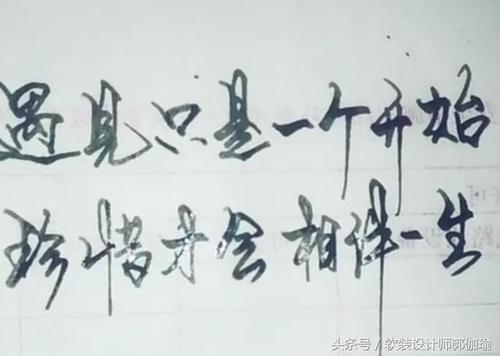 遇见只是一个开始
珍惜才会相伴一生
头条号/软装设计师郭伽瑜